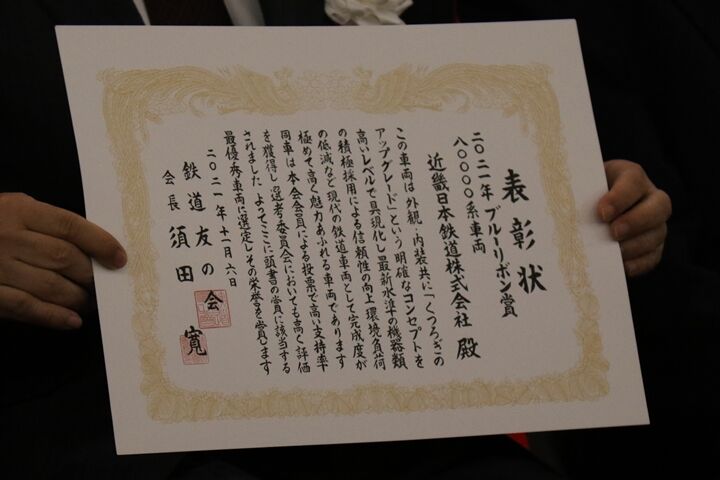 表彰状
二〇二一年 ブルーリボン賞
八〇〇〇〇系車両
近畿日本鉄道株式会社 殿
この車両は 外観・内装共に「くつろぎの
アップグレード」という 明確なコンセプトを
高いレベルで具現化し 最新水準の機器類
の積極採用による信頼性の向上 環境負荷
の低減など 現代の鉄道車両として完成度が
極めて高く 魅力あふれる車両であります
同車は 本会会員による投票で高い支持率
を獲得し 選考委員会においても高く評価
されました よってここに頭書の賞に該当する
最優秀車両に選定し その栄誉を賞します
二〇二一年十一月六日
鉄道友の会
会長 須田 寬